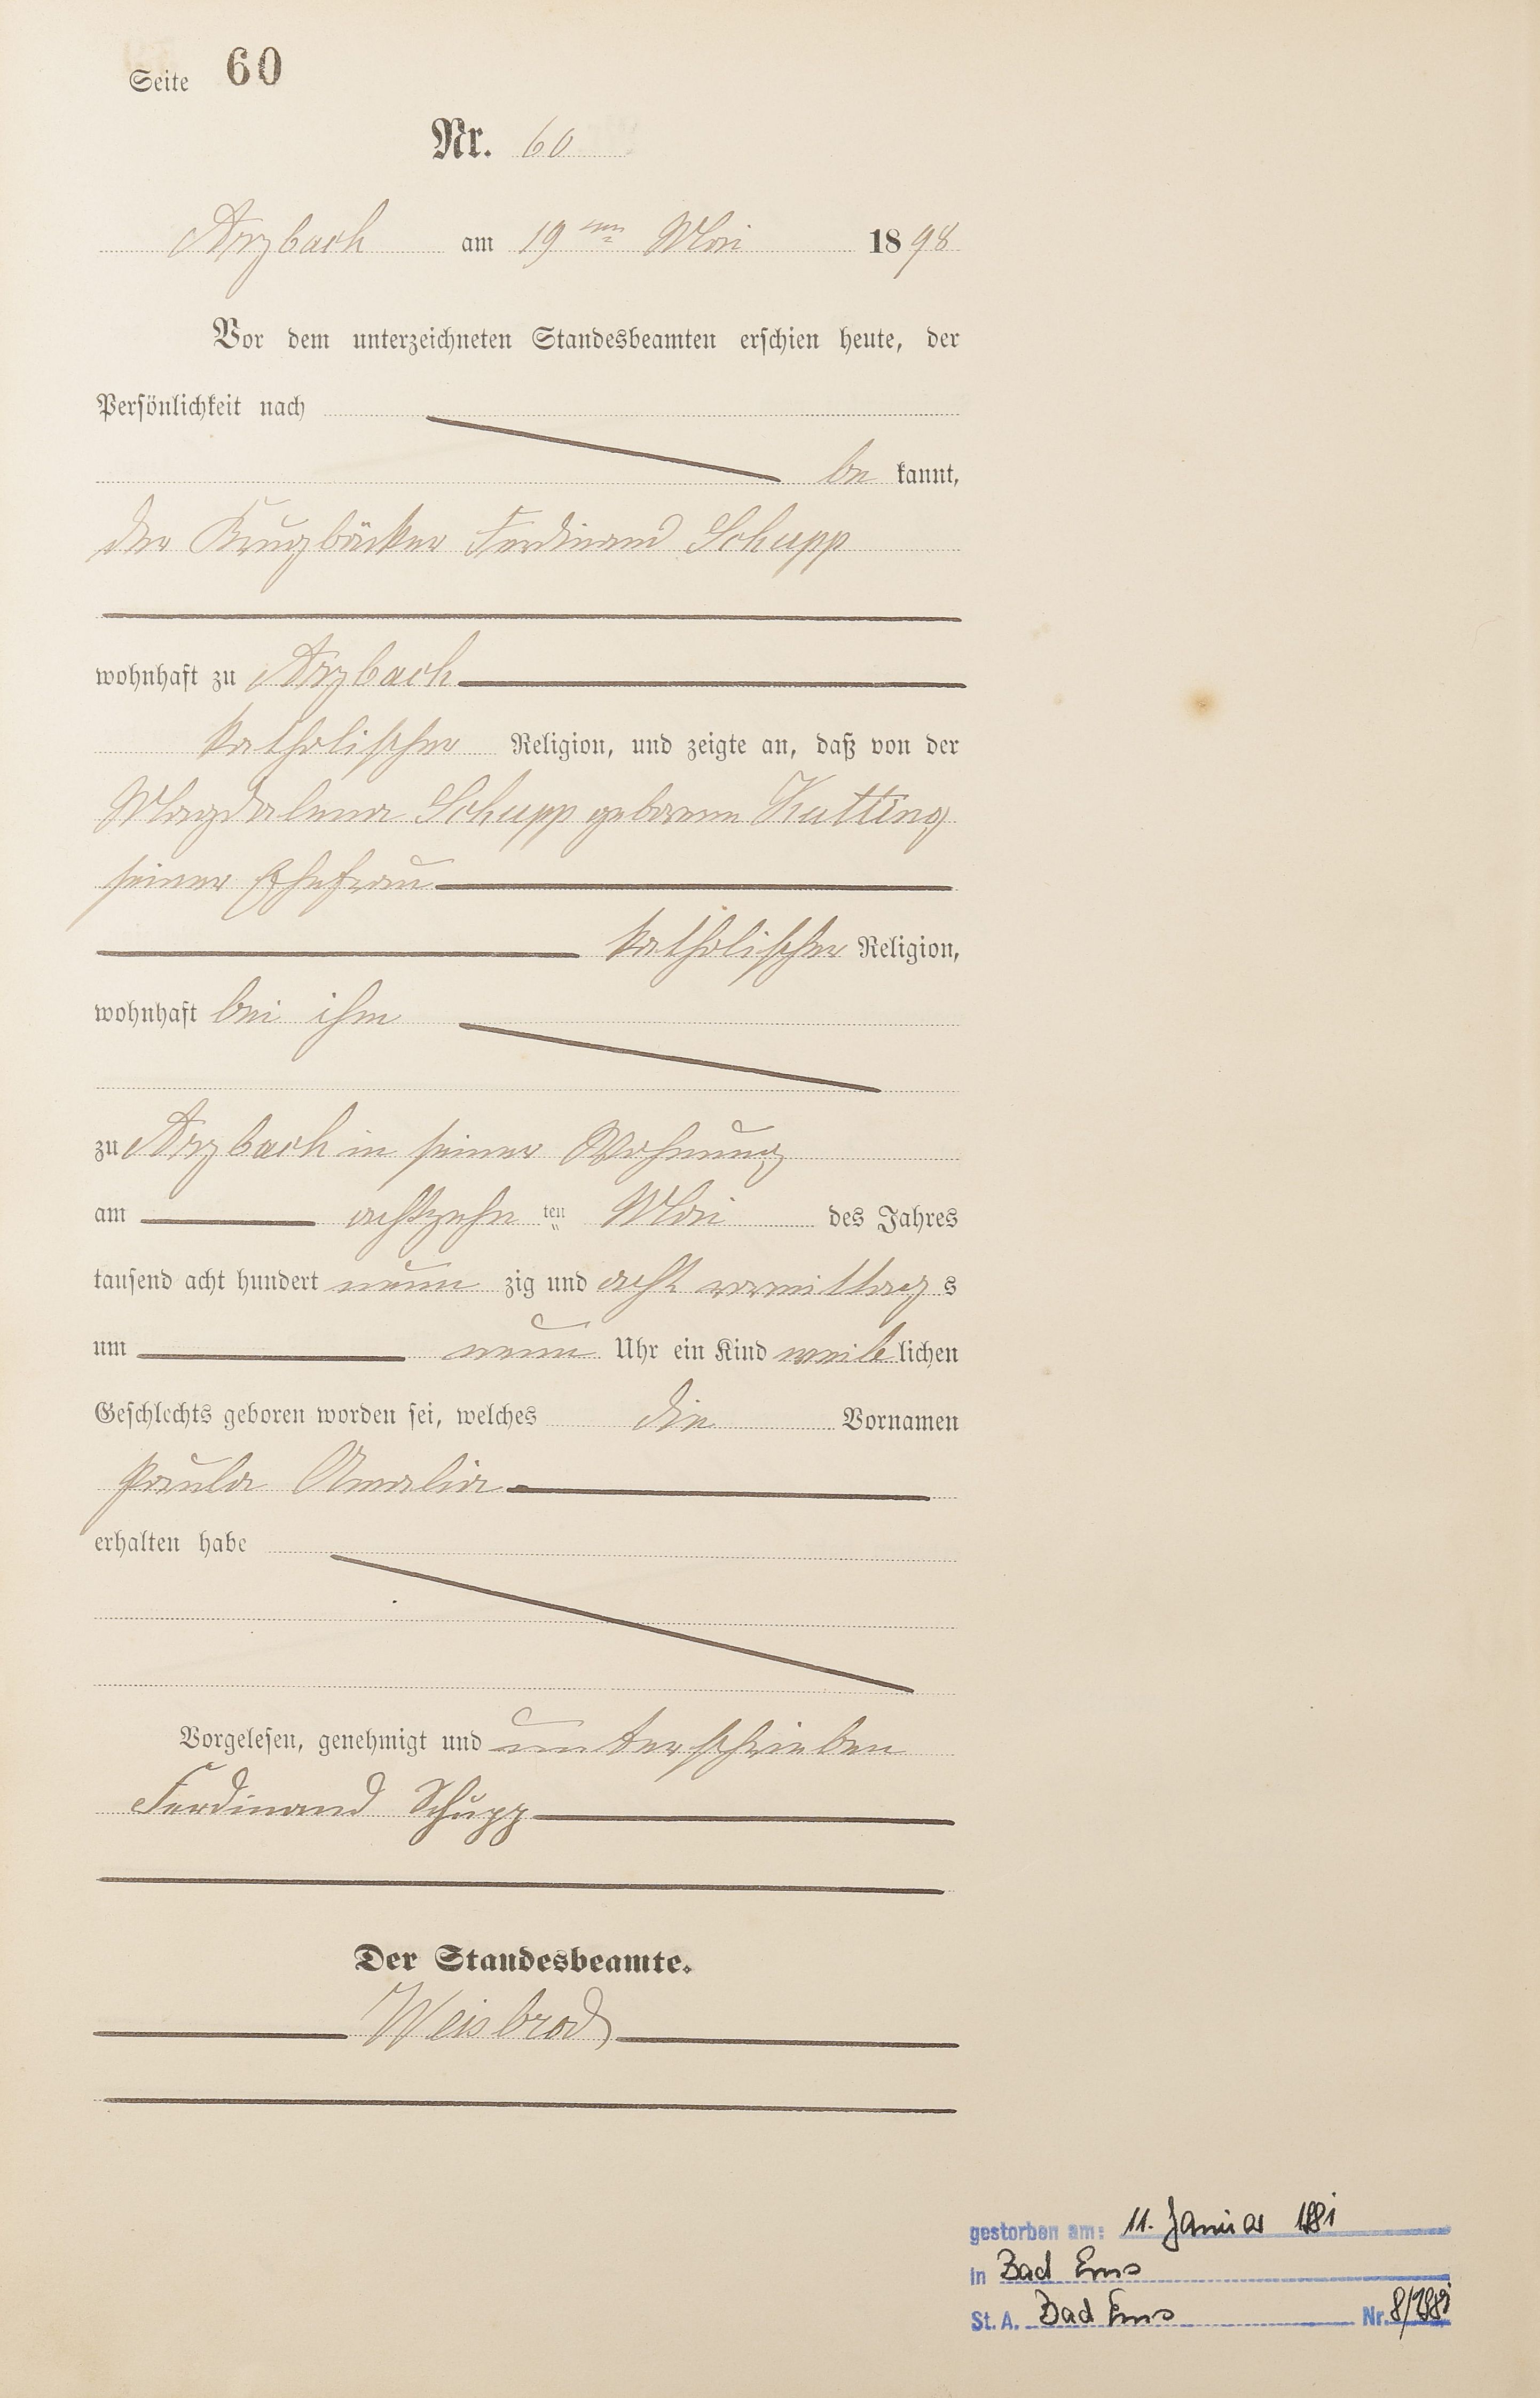 Seite 60
Nr. 60
Arzbach am 19ten Mai 1898
Vor dem unterzeichneten Standesbeamten erschien heute, der
Persönlichkeit nach
be kannt,
der Krugbäcker Ferdinand Schupp
wohnhaft zu Arzbach
katholischer Religion, und zeigte an, daß von der
Magdalena Schupp geborene Kutting
seiner Ehefrau
katholischer Religion,
wohnhaft bei ihm
zu Arzbach in seiner Wohnung
am achtzehn ten Mai des Jahres
tausend acht hundert neun zig und acht vormittag s
um neun Uhr ein Kind weib lichen
Geschlechts geboren worden sei, welches die Vornamen
Paula Amalia
erhalten habe
Vorgelesen, genehmigt und unterschrieben
Ferdinand Schupp
Der Standesbeamte.
Weisbrod
gestorben am: 11. Januar 1981
in Bad Ems
St. A. Bad Ems Nr. 8/1981